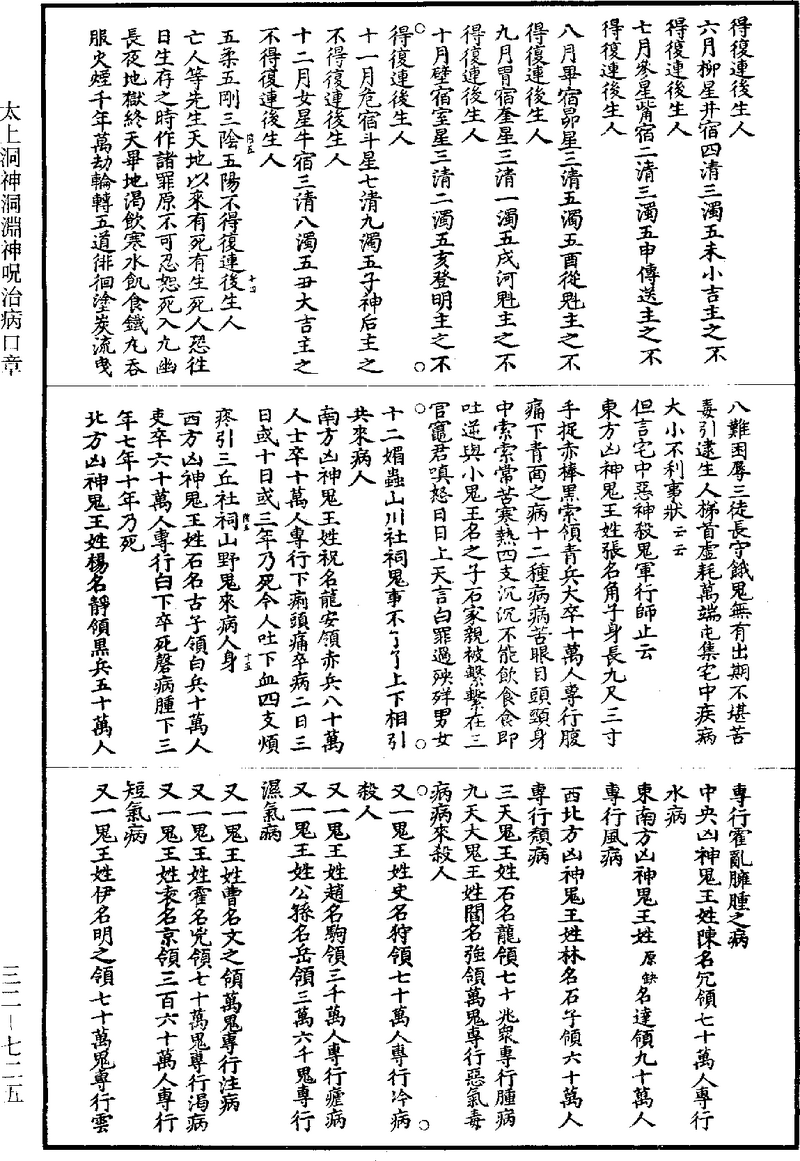 得復連後生人
六月柳星井宿四清三濁五未小吉主之不
得復連後生人
七月參星觜宿二清三濁五申傳送主之不
得復連後生人
八月畢宿昴星三清五濁五酉從魁主之不
得復連後生人
九月胃宿奎星三清一濁五戌河魁主之不
得復連後生人
十月壁宿室星三清二濁五亥登明主之不
得復連後生人
十一月危宿斗星七清九濁五子神后主之
不得復連後生人
十二月女星牛宿三清八濁五丑大吉主之
不得復連後生人
五柔五剛三陰五陽不得復連後生人
亡人等先生天地以來有死有生死人恐往
日生存之時作諸罪原不可忍恕死入九幽
長夜地獄終天畢地渴飲寒水飢食鐵丸吞
服火煙千年萬劫輪轉五道徘徊塗炭流曳
八難困辱三徒長守餓鬼無有出期不堪苦
毒引逮生人梯首虛耗萬端屯集宅中疾病
大小不利事狀云云
但言宅中惡神殺鬼軍行師止云
東方凶神鬼王姓張名角子身長九尺三寸
手捉赤棒黑索領青兵大卒十萬人專行腹
痛下青面之病十二種病病苦眼目頭頸身
中索索常苦寒熱四支沉沉不能飲食食即
吐逆與小鬼王名之子石家親被繫繫在三
官竈君嗔怒日日上天言白罪過殃殍男女
十二媚蟲山川社祠鬼事不了了上下相引
共來病人
南方凶神鬼王姓祝名龍安領赤兵八十萬
人士卒十萬人專行下痢頭痛卒病二日三
日或十日或三年乃死令人吐下血四支煩
疼引三丘社祠山野鬼來病人身
西方凶神鬼王姓石名古子領白兵十萬人
吏卒六十萬人專行白下卒死磬病腫下三
年七年十年乃死
北方凶神鬼王姓楊名靜領黑兵五十萬人
專行霍亂臃腫之病
中央凶神鬼王姓陳名冗領七十萬人專行
水病
東南方凶神鬼王姓原缺名達領九十萬人
專行風病
西北方凶神鬼王姓林名石子領六十萬人
專行頹病
三天鬼王姓石名龍領七十兆眾專行腫病
九天大鬼王姓閻名強領萬鬼專行惡氣毒
病病來殺人
又一鬼王姓史名狩領七十萬人專行冷病
殺人
又一鬼王姓趙名駒領三千萬人專行瘧病
又一鬼王姓公孫名岳領三萬六千鬼專行
濕氣病
又一鬼王姓曹名文之領萬鬼專行注病
又一鬼王姓霍名兇領七十萬鬼專行渴病
又一鬼王姓袁名京領三百六十萬人專行
短氣病
又一鬼王姓伊名明之領七十萬鬼專行雲
太上洞神洞淵神呪治病口章
三二－七二五